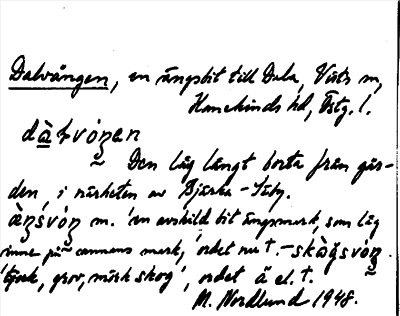 Dalvången, en ängsbit till Dala, Vists sn,
Hanekinds hd, Östg. l.
dàɫvóŋen
Den låg långt borta från går-
den, i närheten av Bjärka-Säby.
m. 'en avskild bit ängsmark, som låg
inne på annans mark,' ordet nu †.
'tjock, grov, mörk skog', ordet ä el. †.
M. Nordlund 1948.